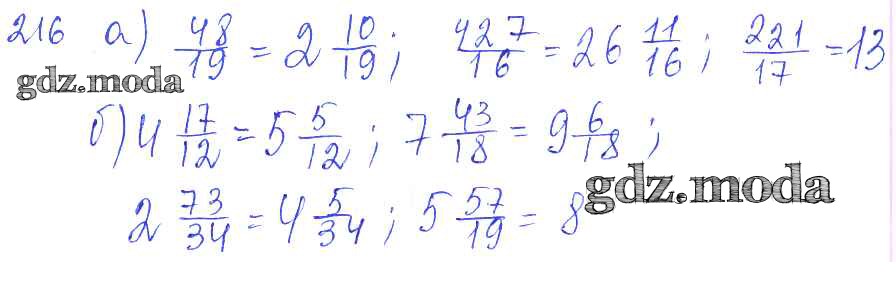 216 а) 48/19 = 2 10/19; 427/16 = 26 11/16; 221/17 = 13
gdz.moda
б) 4 17/12 = 5 5/12; 7 43/18 = 9 6/18;
gdz.moda
2 73/34 = 4 5/34; 5 57/19 = 8